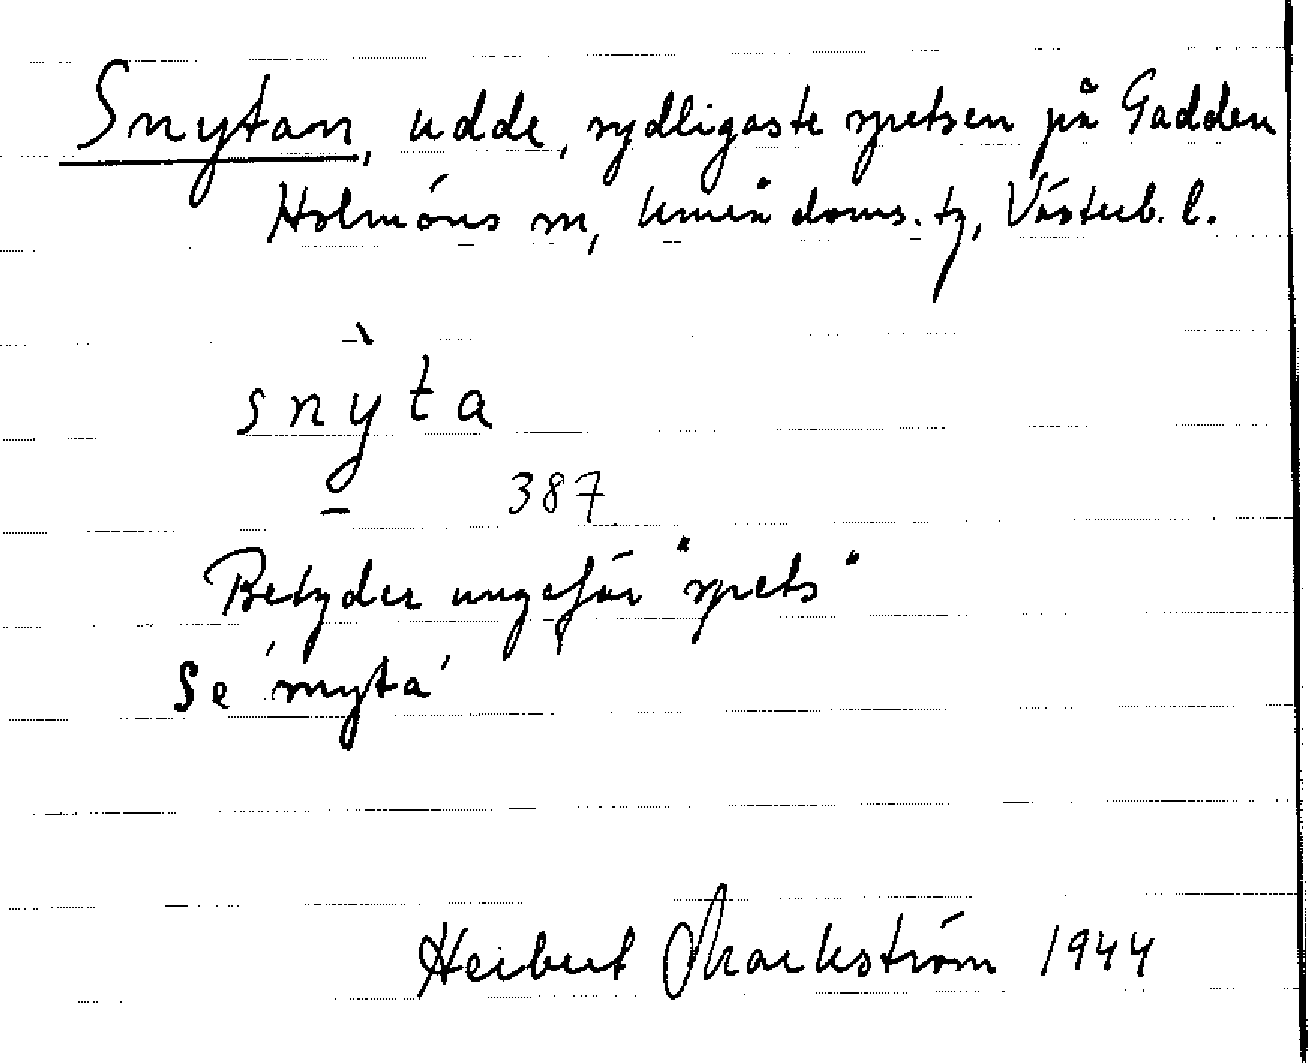 Snytan, udde, sydligaste spetsen på Gadden
Holmöns sn, Umeå doms. tg, Västerb. l.
snỳ̱ta
387
Betyder ungefär "spets"
Se 'snyta'
Herbert Markström 1944